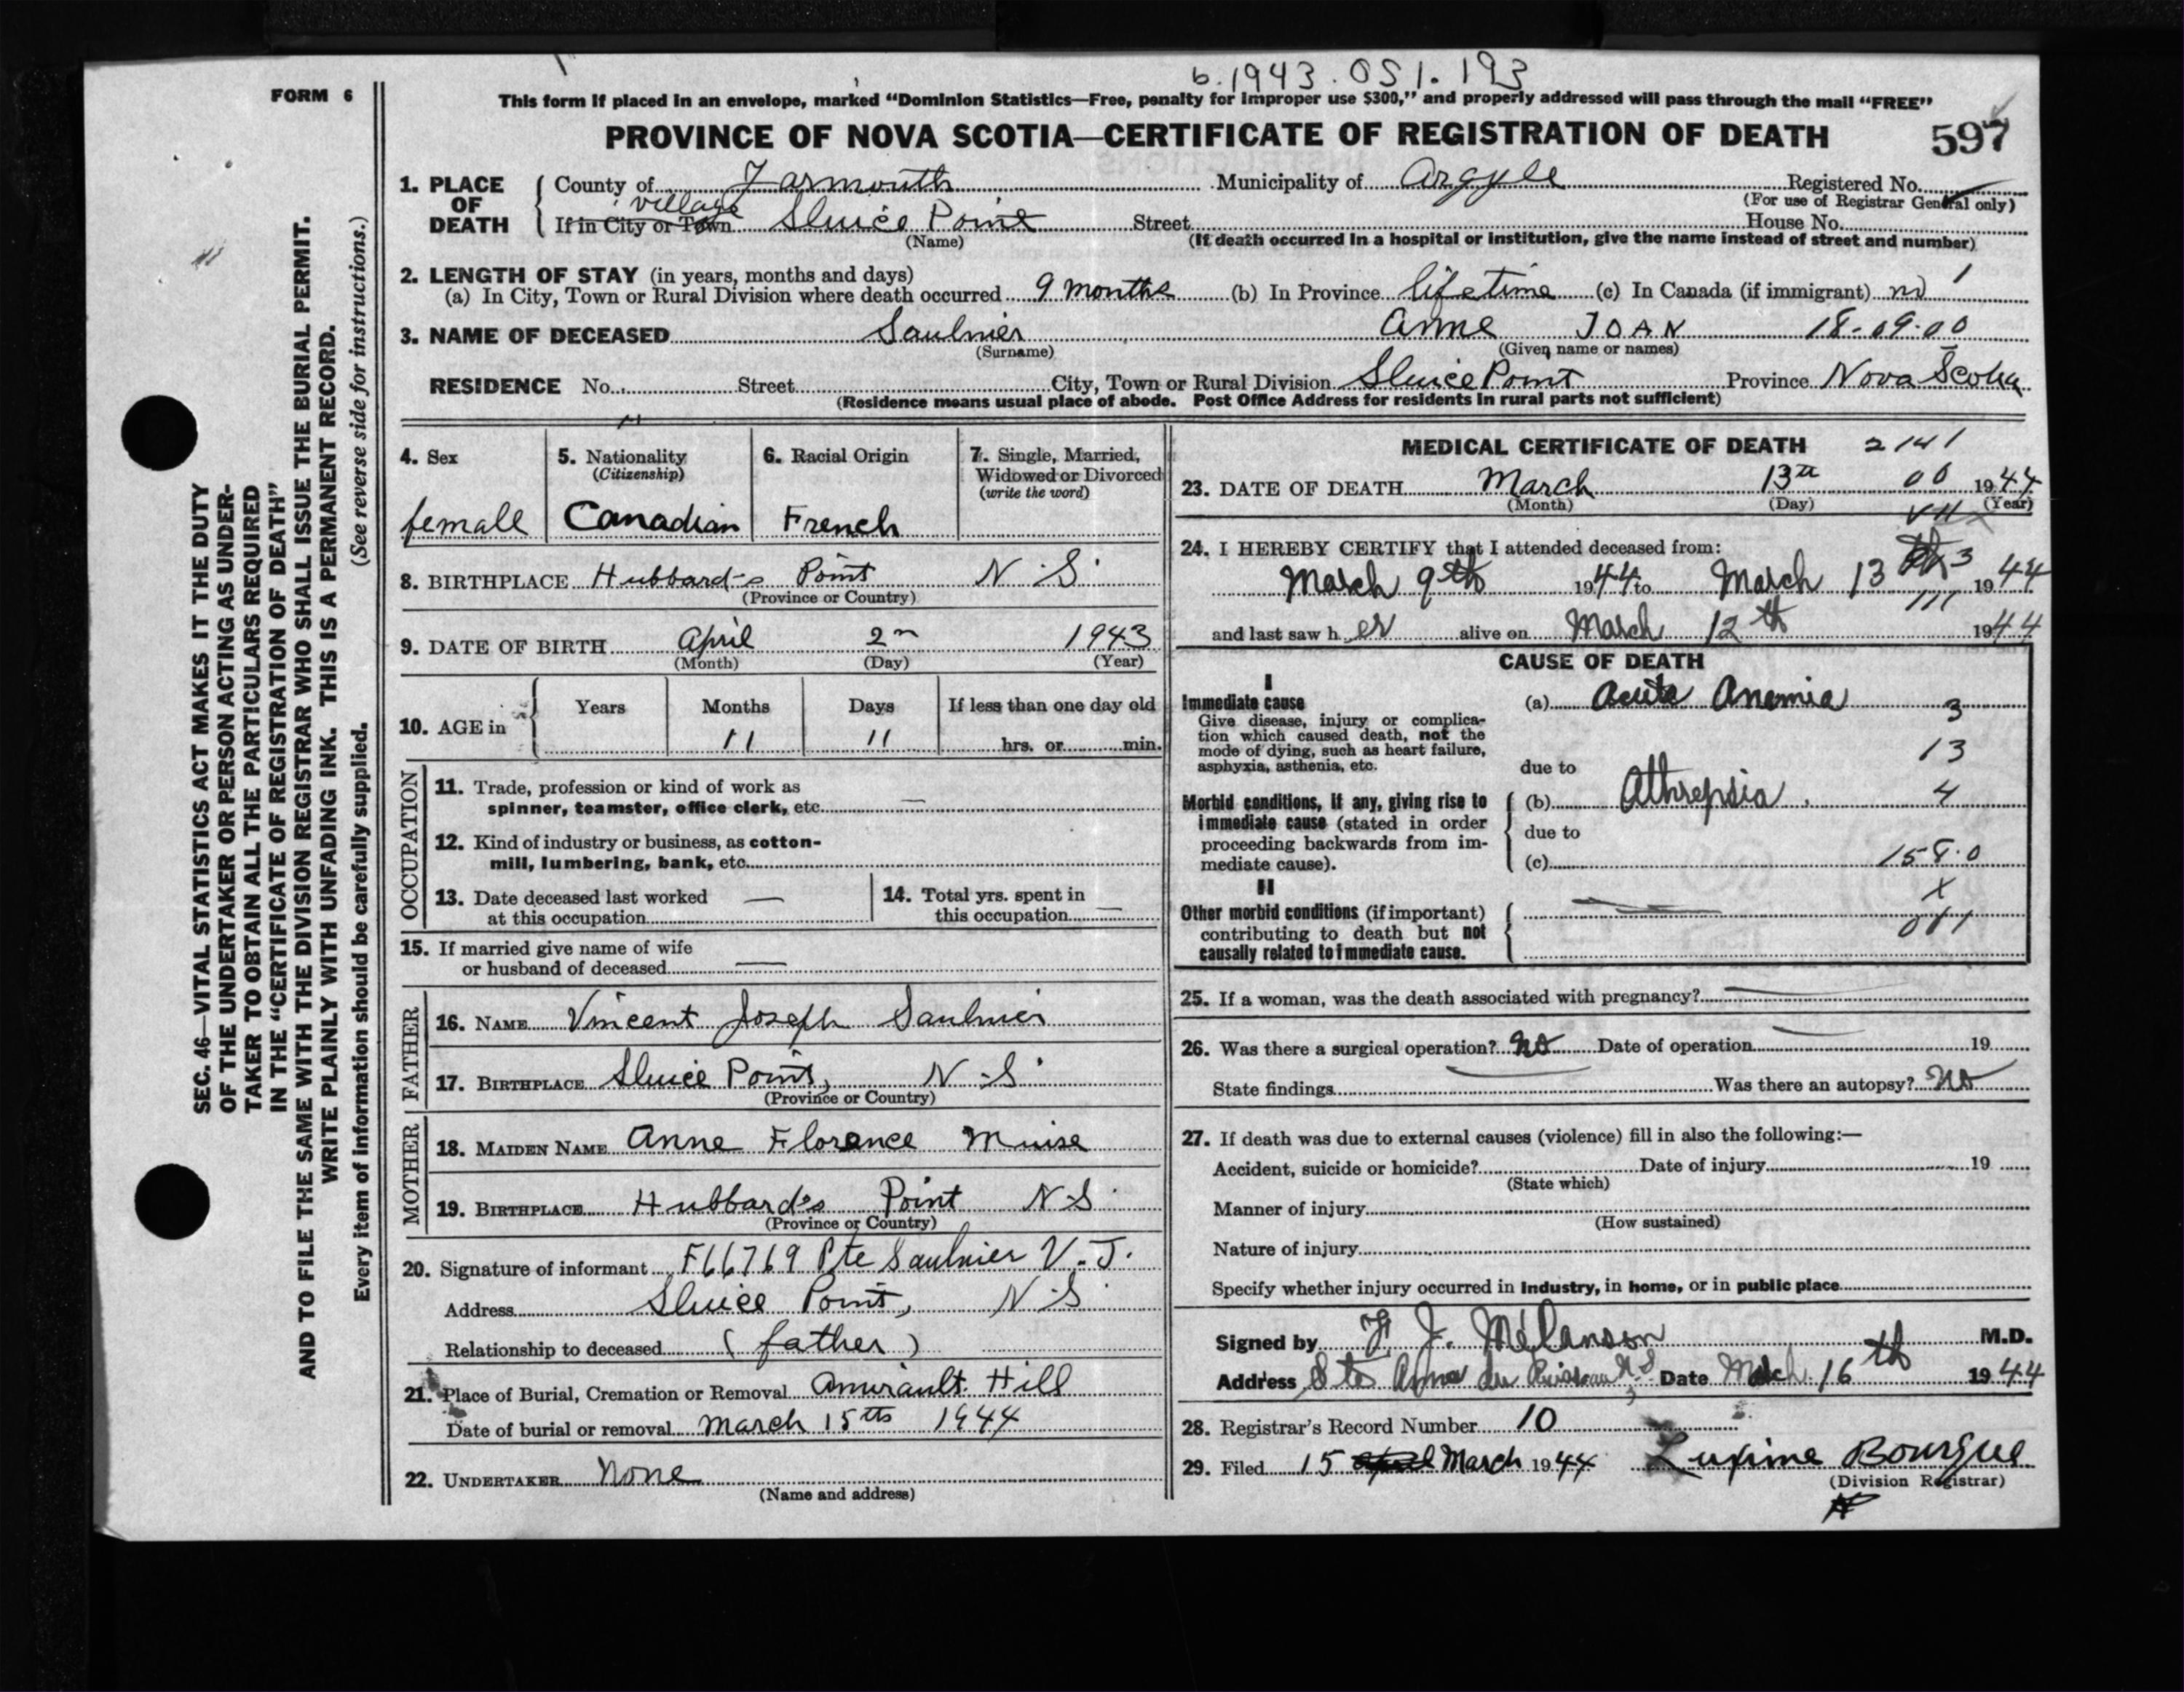 b. 1943. 051. 193
FORM 6
This form if placed in an envelope, marked “Dominion Statistics—Free, penalty for improper use $300,” and properly addressed will pass through the mail “FREE”
PROVINCE OF NOVA SCOTIA—CERTIFICATE OF REGISTRATION OF DEATH 597
1. PLACE OF DEATH
County of Yarmouth Municipality of Argyle Registered No.
(For use of Registrar General only)
village
If in City or Town Sluice Point Street House No.
(Name) (If death occurred in a hospital or institution, give the name instead of street and number)
2. LENGTH OF STAY (in years, months and days)
(a) In City, Town or Rural Division where death occurred 9 months (b) In Province lifetime (c) In Canada (if immigrant) no 1
3. NAME OF DECEASED Saulnier Anne JOAN 18-09-00
(Surname) (Given name or names)
RESIDENCE No. Street City, Town or Rural Division Sluice Point Province Nova Scotia
(Residence means usual place of abode. Post Office Address for residents in rural parts not sufficient)
4. Sex
female
5. Nationality
(Citizenship)
Canadian
6. Racial Origin
French
7. Single, Married,
Widowed or Divorced
(write the word)
8. BIRTHPLACE Hubbard's Point N.S.
(Province or Country)
9. DATE OF BIRTH April 2n 1943
(Month) (Day) (Year)
10. AGE in Years Months Days If less than one day old
11 11 hrs. or min.
OCCUPATION
11. Trade, profession or kind of work as
spinner, teamster, office clerk, etc. —
12. Kind of industry or business, as cotton-
mill, lumbering, bank, etc.
13. Date deceased last worked
at this occupation —
14. Total yrs. spent in
this occupation —
15. If married give name of wife
or husband of deceased —
FATHER
16. NAME Vincent Joseph Saulnier
17. BIRTHPLACE Sluice Point, N.S.
(Province or Country)
MOTHER
18. MAIDEN NAME Anne Florence Muise
19. BIRTHPLACE Hubbard's Point N.S.
(Province or Country)
20. Signature of informant F66769 Pte Saulnier V.J.
Address Sluice Point, N.S.
Relationship to deceased (father)
21. Place of Burial, Cremation or Removal Amirault Hill
Date of burial or removal March 15th 1944
22. UNDERTAKER None
(Name and address)
MEDICAL CERTIFICATE OF DEATH 2141
23. DATE OF DEATH March 13th 00 1944
(Month) (Day) (Year)
24. I HEREBY CERTIFY that I attended deceased from:
March 9th 1944 to March 13th 3 1944
111
and last saw her alive on March 12th 1944
CAUSE OF DEATH
I
Immediate cause
Give disease, injury or complica-
tion which caused death, not the
mode of dying, such as heart failure,
asphyxia, asthenia, etc.
(a) Acute Anemia 3
13
due to
Morbid conditions, if any, giving rise to
immediate cause (stated in order
proceeding backwards from im-
mediate cause).
(b) Athrepsia 4
due to
(c) 158.0
II
X
Other morbid conditions (if important)
contributing to death but not
causally related to immediate cause.
011
25. If a woman, was the death associated with pregnancy? —
26. Was there a surgical operation? no Date of operation 19
State findings Was there an autopsy? no
27. If death was due to external causes (violence) fill in also the following:—
Accident, suicide or homicide? Date of injury 19
(State which)
Manner of injury
(How sustained)
Nature of injury
Specify whether injury occurred in industry, in home, or in public place
Signed by J. Mélanson M.D.
Address Ste Anne du Ruisseau N.S. Date March 16th 1944
28. Registrar's Record Number 10
29. Filed 15 March 1944 Luxime Bourque
(Division Registrar)
SEC. 46—VITAL STATISTICS ACT MAKES IT THE DUTY
OF THE UNDERTAKER OR PERSON ACTING AS UNDER-
TAKER TO OBTAIN ALL THE PARTICULARS REQUIRED
IN THE “CERTIFICATE OF REGISTRATION OF DEATH”
AND TO FILE THE SAME WITH THE DIVISION REGISTRAR WHO SHALL ISSUE THE BURIAL PERMIT.
WRITE PLAINLY WITH UNFADING INK. THIS IS A PERMANENT RECORD.
Every item of information should be carefully supplied. (See reverse side for instructions.)